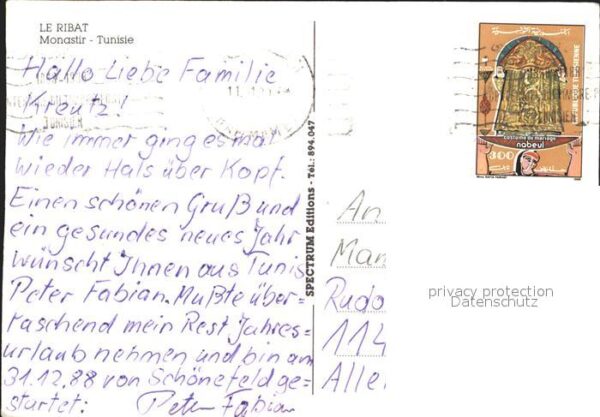 LE RIBAT
Monastir - Tunisie
Hallo Liebe Familie
Kreutz!
Wie immer ging es mal
wieder Hals über Kopf.
Einen schönen Gruß und
ein gesundes neues Jahr
wünscht Ihnen aus Tunis
Peter Fabian. Mußte über-
raschend mein Rest Jahres=
urlaub nehmen und bin am
31.12.88 von Schönefeld ge=
startet: Peter Fabian
SPECTRUM Editions - Tél.: 894.047
costume de mariage
nabeul
300
TUNISIEN
An
Man
Rudo
114
Alle
privacy protection
Datenschutz